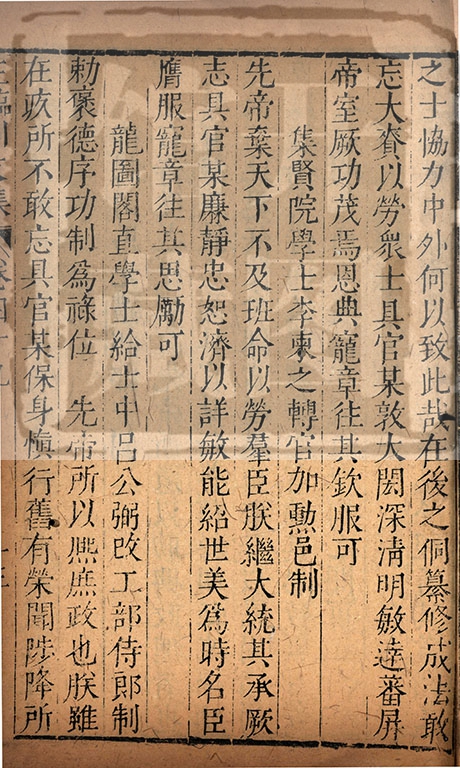 之士恊力中外何以致此哉在後之侗纂修成法敢
忘大賚以勞衆士具官某敦大閎深清明敏達蕃屏
帝室厥功茂焉恩典寵章往其欽服可
集賢院學士李柬之轉官加勲邑制
先帝棄天下不及班命以勞羣臣朕繼大統其承厥
志具官某廉靜忠恕濟以詳敏能紹世美爲時名臣
膺服寵章往其思勵可
龍圖閣直學士給士中吕公弼改工部侍郎制
勅褒德序功制爲祿位 先帝所以熈庶政也朕雖
在疚所不敢忘具官某保身愼行舊有榮聞陟降所
王臨川文集 卷四十九